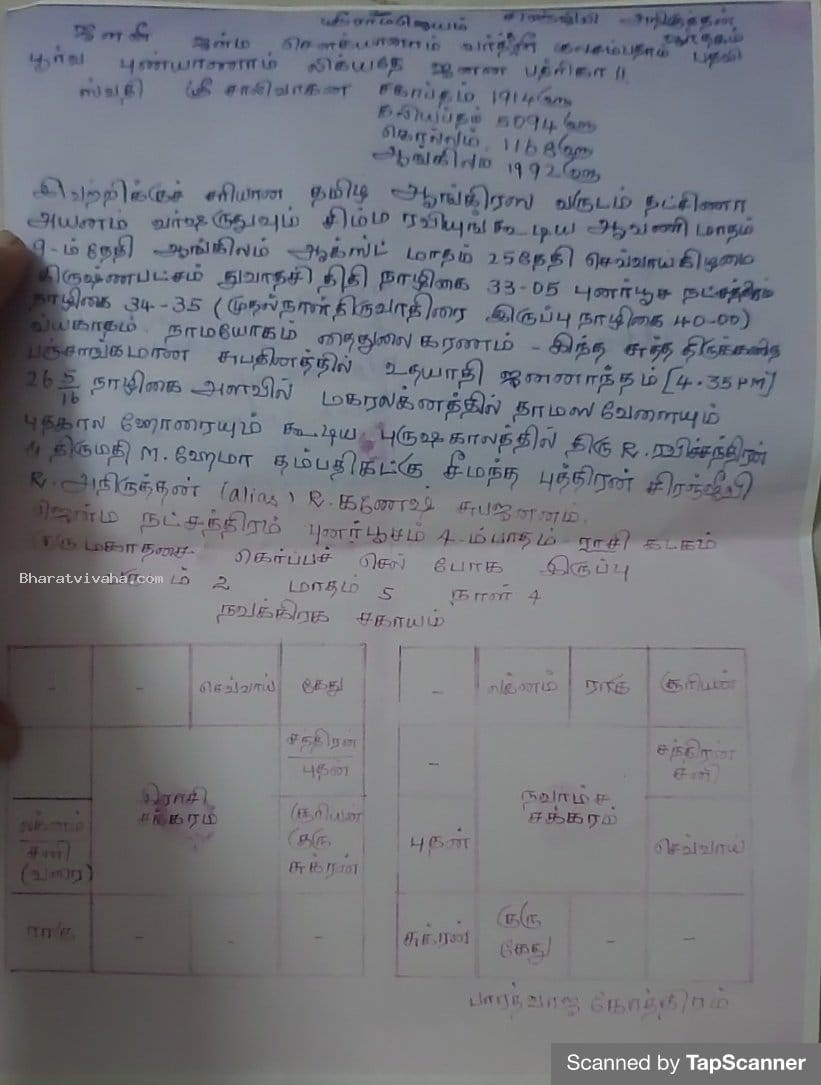 ஸ்ரீராமஜெயம்
ஜனனீ ஜன்ம சௌக்யானாம் வர்த்தனீ குலசம்பதாம் பதவீ
பூர்வ புண்யானாம் லிக்யதே ஜனன பத்ரிகா ||
ஸ்வஸ்தி ஸ்ரீ சாலிவாகன சகாப்தம் 1914
கலியப்தம் 5094
கொல்லம் 1168
ஆங்கிலம் 1992
இவற்றிக்குச் சரியான தமிழ் ஆங்கிரஸ வருடம் தட்சிணா
அயனம் வர்ஷருதுவும் சிம்ம ரவியுங்கூடிய ஆவணி மாதம்
9-ம்தேதி ஆங்கிலம் ஆகஸ்ட் மாதம் 25தேதி செவ்வாய்கிழமை
கிருஷ்ணபட்சம் துவாதசி திதி நாழிகை 33-05 புனர்பூச நட்சத்திரம்
நாழிகை 34-35 (முதல்நாள் திருவாதிரை இருப்பு நாழிகை 40-00)
நாமயோகம் தைதுலை கரணம் - இந்த சுத்த திருக்கணித
பஞ்சாங்கமான சுபதினத்தில் உதயாதி ஜனனாந்தம் [4.35 PM]
26 5/16 நாழிகை அளவில் மகரலக்னத்தில் தாமஸ வேளையும்
புதகால ஹோரையும் கூடிய புருஷகாலத்தில் திரு R. ரவிச்சந்திரன்
திருமதி M. ஹேமா தம்பதிகட்கு சீமந்த புத்திரன் சிரஞ்ஜீவி
R. அநிருத்தன் (alias) R. கணேஷ் சுபஜனனம்.
ஜென்ம நட்சத்திரம் புனர்பூசம் 4-ம்பாதம் ராசி கடகம்
குரு மகாதசை கெர்ப்பச் செல் போக இருப்பு
Bharatvivaha.com
2 மாதம் 5 நாள் 4
நவக்கிரக சகாயம்
- - செவ்வாய் கேது
சந்திரன்
புதன்
இராசி
சக்கரம்
லக்னம்
சனி
(வ)
சூரியன்
குரு
சுக்ரன்
ராகு - - -
- லக்னம் ராகு சூரியன்
- சந்திரன்
சனி
நவாம்ச
சக்கரம்
புதன் செவ்வாய்
சுக்ரன் குரு
கேது - -
பாரத்வாஜ கோத்திரம்
Scanned by TapScanner